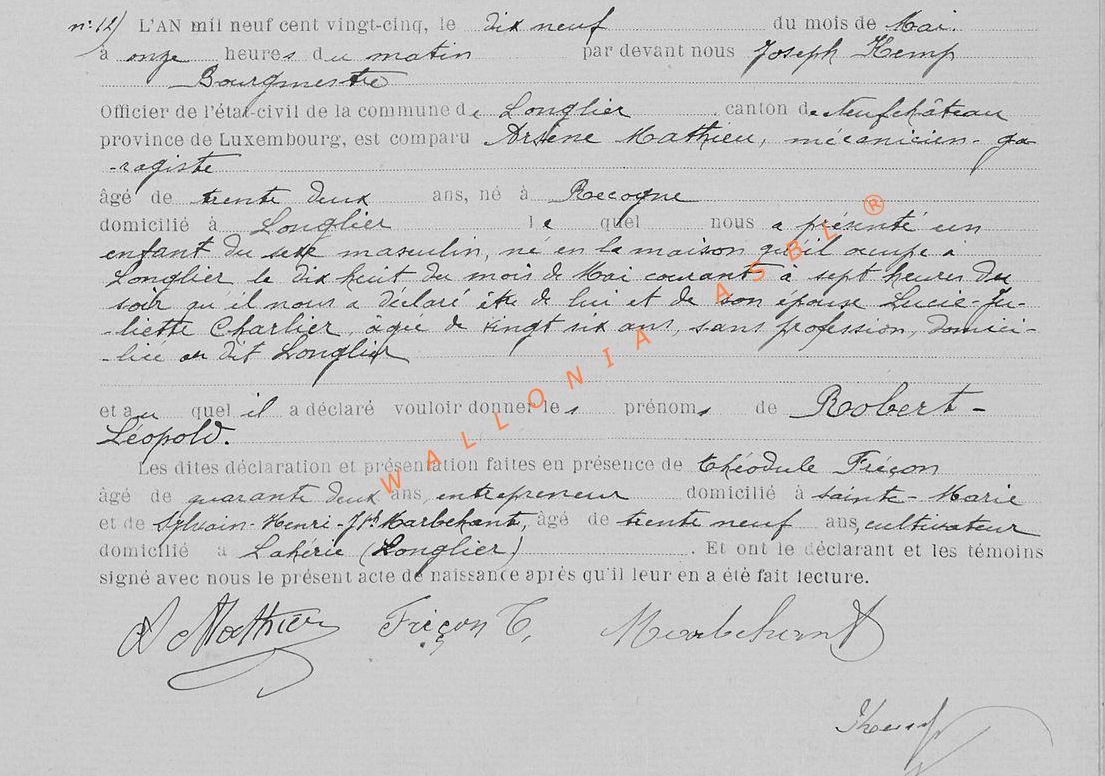 n° 12) L'AN mil neuf cent vingt-cinq, le dix neuf du mois de Mai.
à onze heures du matin par devant nous Joseph Kemp
Bourgmestre
Officier de l'état-civil de la commune de Longlier canton de Neufchâteau
province de Luxembourg, est comparu Arsène Mathieu, mécanicien-ga-
-ragiste
âgé de trente deux ans, né à Recogne
domicilié à Longlier le quel nous a présenté un
enfant du sexe masculin, né en la maison qu'il occupe à
Longlier le dix huit du mois de Mai courant à sept heures du
soir qu'il nous a déclaré être de lui et de son épouse Lucie-Ju-
-liette Charlier, âgée de vingt six ans, sans profession, domici-
-liée au dit Longlier
et au quel il a déclaré vouloir donner les prénoms de Robert-
Léopold.
Les dites déclaration et présentation faites en présence de Théodule Friçon
âgé de quarante deux ans, entrepreneur domicilié à Sainte-Marie
et de Sylvain-Henri-Jh Marbehant, âgé de trente neuf ans, cultivateur
domicilié à Lahérie (Longlier). Et ont le déclarant et les témoins
signé avec nous le présent acte de naissance après qu'il leur en a été fait lecture.
A Mathieu Friçon T, Marbehant
JKemp
WALLONIA ASBL ®